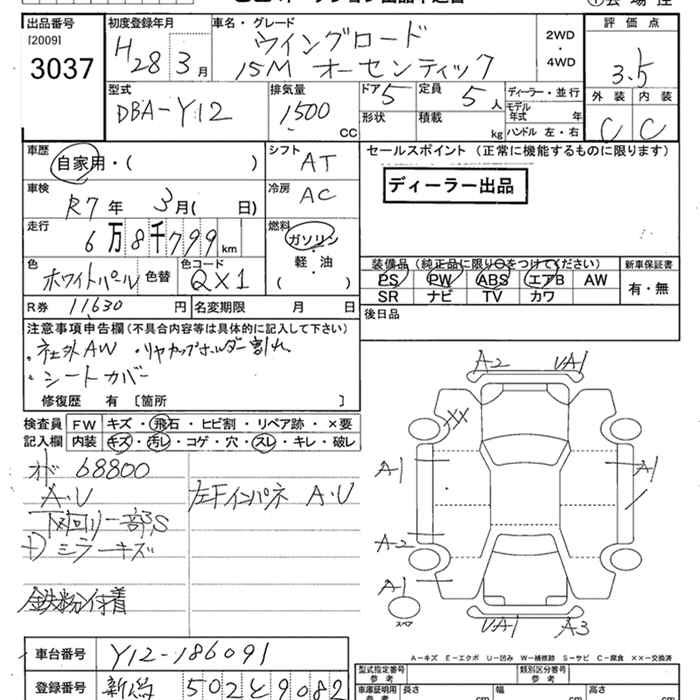 出品番号 初度登録年月 車名・グレード 2WD・4WD 評価点
[2009] H28年3月 ウイングロード 3.5
3037 15M オーセンティック 外装 内装
型式 排気量 ドア 5 定員 5人 ディーラー・並行 C C
DBA-Y12 1500cc 形状 積載 kg モデル年式 年
ハンドル 左・右
車歴 シフト AT セールスポイント(正常に機能するものに限ります)
自家用・( )
ディーラー出品
車検 冷房 AC
R7年3月( 日)
走行 燃料
6万8千799km ガソリン
軽・油
( )
色 色替 色コード 装備品(純正品に限り○をつけてください) 新車保証書
ホワイトパール QX1 PS PW ABS エアB AW 有・無
SR ナビ TV カワ
R券 11,630円 名変期限 月 日 後日品
注意事項申告欄(不具合内容等は具体的に記入して下さい)
・社外AW ・リヤカップホルダー割れ
・シートカバー
修復歴 有[箇所 ]
A-2 UA1
検査員 FW キズ・飛石・ヒビ割・リペア跡・×要
記入欄 内装 キズ・汚レ・コゲ・穴・スレ・キレ・破レ
XX
オド 68800 A-1 A1
A・U 左Fインパネ A・U
下回り一部S
ミラーキズ A-2
鉄粉付着 A-1
スペア UA1 A3
A-キズ E-エクボ U-凹み W-補修跡 S-サビ C-腐食 XX-交換済
車台番号 Y12-186091
型式指定番号 参考 類別区分番号 参考
登録番号 新潟 502と9082
車庫証明用 参考 長さ cm 幅 cm 高さ cm